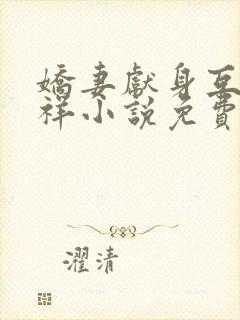 嬌妻獻身互
祥小說免費
濯清